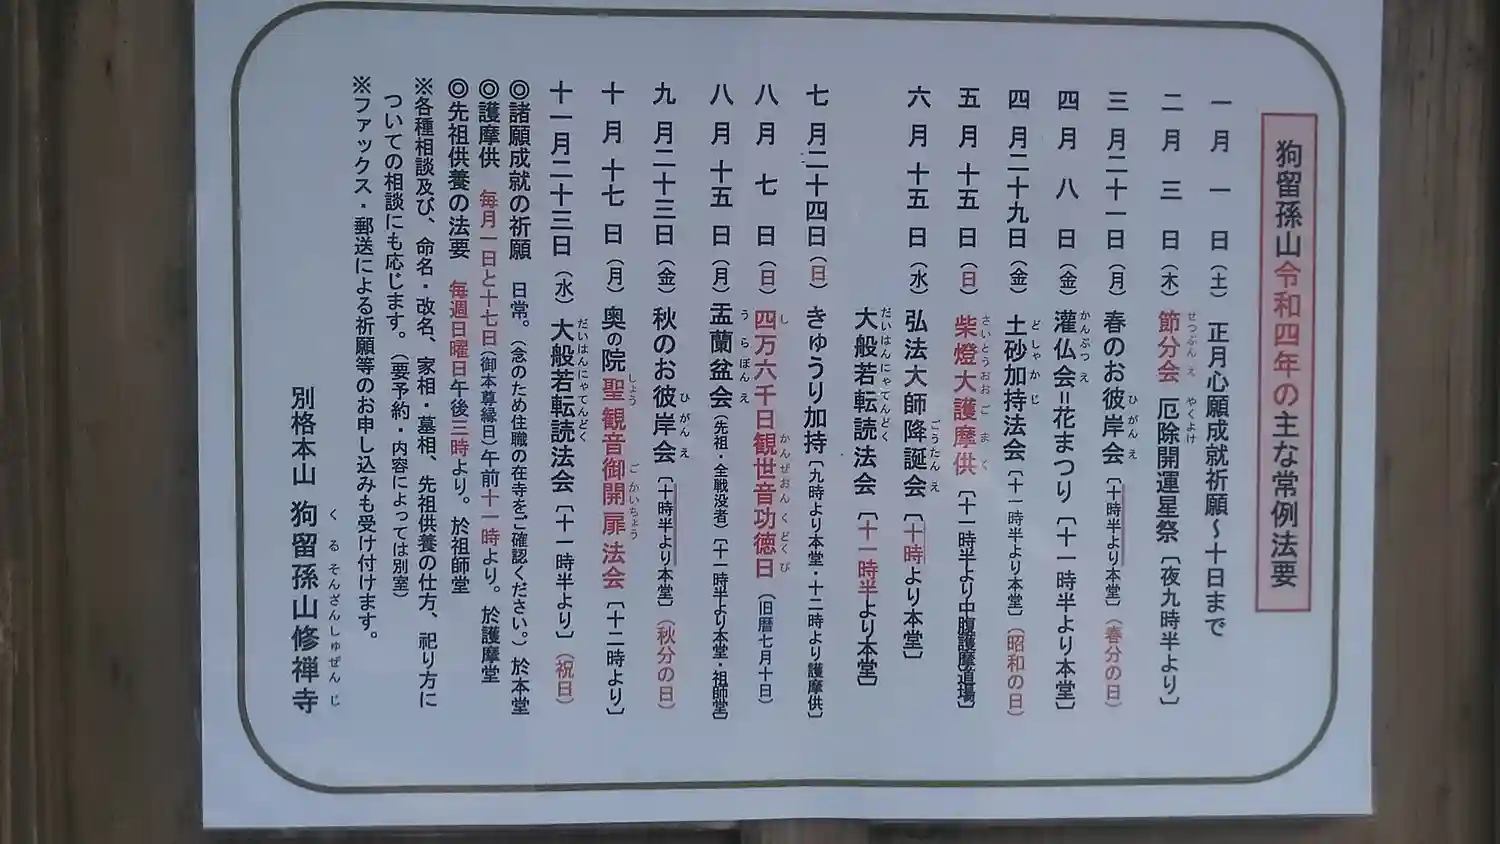 狗留孫山令和四年の主な常例法要
一月一日（土）正月心願成就祈願～十日まで
二月三日（木）節分会 厄除開運星祭〔夜九時半より〕
三月二十一日（月）春のお彼岸会〔十時半より本堂〕（春分の日）
四月八日（金）灌仏会＝花まつり〔十一時半より本堂〕
四月二十九日（金）土砂加持法会〔十一時半より本堂〕（昭和の日）
五月十五日（日）柴燈大護摩供〔十一時半より中腹護摩道場〕
六月十五日（水）弘法大師降誕会〔十時より本堂〕
大般若転読法会〔十一時半より本堂〕
七月二十四日（日）きゅうり加持〔九時より本堂・十二時より護摩供〕
八月七日（日）四万六千日観世音功徳日（旧暦七月十日）
八月十五日（月）盂蘭盆会（先祖・全戦没者）〔十一時半より本堂・祖師堂〕
九月二十三日（金）秋のお彼岸会〔十時半より本堂〕（秋分の日）
十月十七日（月）奥の院聖観音御開扉法会〔十二時より〕
十一月二十三日（水）大般若転読法会〔十一時半より〕（祝日）
◎諸願成就の祈願 日常。（念のため住職の在寺をご確認ください。）於本堂
◎護摩供 毎月一日と十七日（御本尊縁日）午前十一時より。於護摩堂
◎先祖供養の法要 毎週日曜日午後三時より。於祖師堂
※各種相談及び、命名・改名、家相・墓相、先祖供養の仕方、祀り方に
ついての相談にも応じます。（要予約・内容によっては別室）
※ファックス・郵送による祈願等のお申し込みも受け付けます。
別格本山 狗留孫山修禅寺